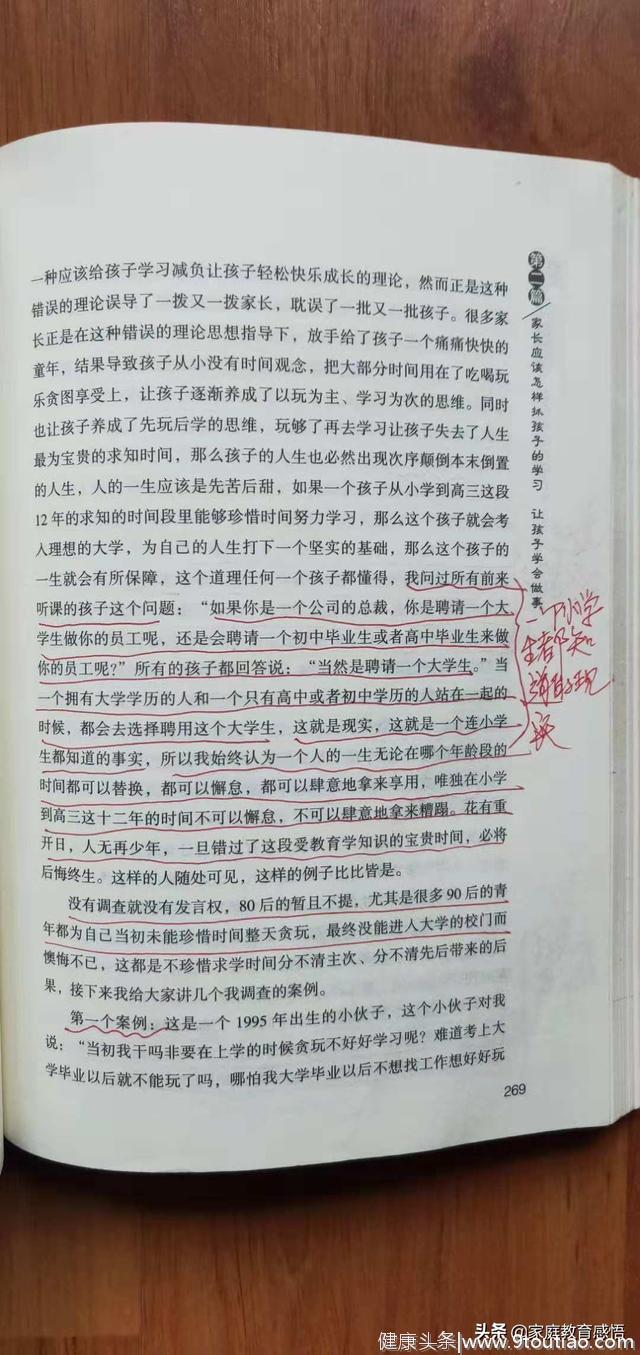 一种应该给孩子学习减负让孩子轻松快乐成长的理论，然而正是这种
错误的理论误导了一拨又一拨家长，耽误了一批又一批孩子。很多家
长正是在这种错误的理论思想指导下，放手给了孩子一个痛痛快快的
童年，结果导致孩子从小没有时间观念，把大部分时间用在了吃喝玩
乐贪图享受上，让孩子逐渐养成了以玩为主、学习为次的思维。同时
也让孩子养成了先玩后学的思维，玩够了再去学习让孩子失去了人生
最为宝贵的求知时间，那么孩子的人生也必然出现次序颠倒本末倒置
的人生，人的一生应该是先苦后甜，如果一个孩子从小学到高三这段
12年的求知的时间段里能够珍惜时间努力学习，那么这个孩子就会考
入理想的大学，为自己的人生打下一个坚实的基础，那么这个孩子的
一生就会有所保障，这个道理任何一个孩子都懂得，我问过所有前来
听课的孩子这个问题：“如果你是一个公司的总裁，你是聘请一个大
学生做你的员工呢，还是会聘请一个初中毕业生或者高中毕业生来做
你的员工呢？”所有的孩子都回答说：“当然是聘请一个大学生。”当
一个拥有大学学历的人和一个只有高中或者初中学历的人站在一起的
时候，都会去选择聘用这个大学生，这就是现实，这就是一个连小学
生都知道的事实，所以我始终认为一个人的一生无论在哪个年龄段的
时间都可以替换，都可以懈怠，都可以肆意地拿来享用，唯独在小学
到高三这十二年的时间不可以懈怠，不可以肆意地拿来糟蹋。花有重
开日，人无再少年，一旦错过了这段受教育学知识的宝贵时间，必将
后悔终生。这样的人随处可见，这样的例子比比皆是。
没有调查就没有发言权，80后的暂且不提，尤其是很多90后的青
年都为自己当初未能珍惜时间整天贪玩，最终没能进入大学的校门而
懊悔不已，这都是不珍惜求学时间分不清主次、分不清先后带来的后
果，接下来我给大家讲几个我调查的案例。
第一个案例：这是一个1995年出生的小伙子，这个小伙子对我
说：“当初我干吗非要在上学的时候贪玩不好好学习呢？难道考上大
学毕业以后就不能玩了吗，哪怕我大学毕业以后不想找工作想好好玩
269
第二篇 家长应该怎样抓孩子的学习 让孩子学会做事
一个小学
生都知
现
头条@家庭教育感悟
健康头条|www.9toutiao.com